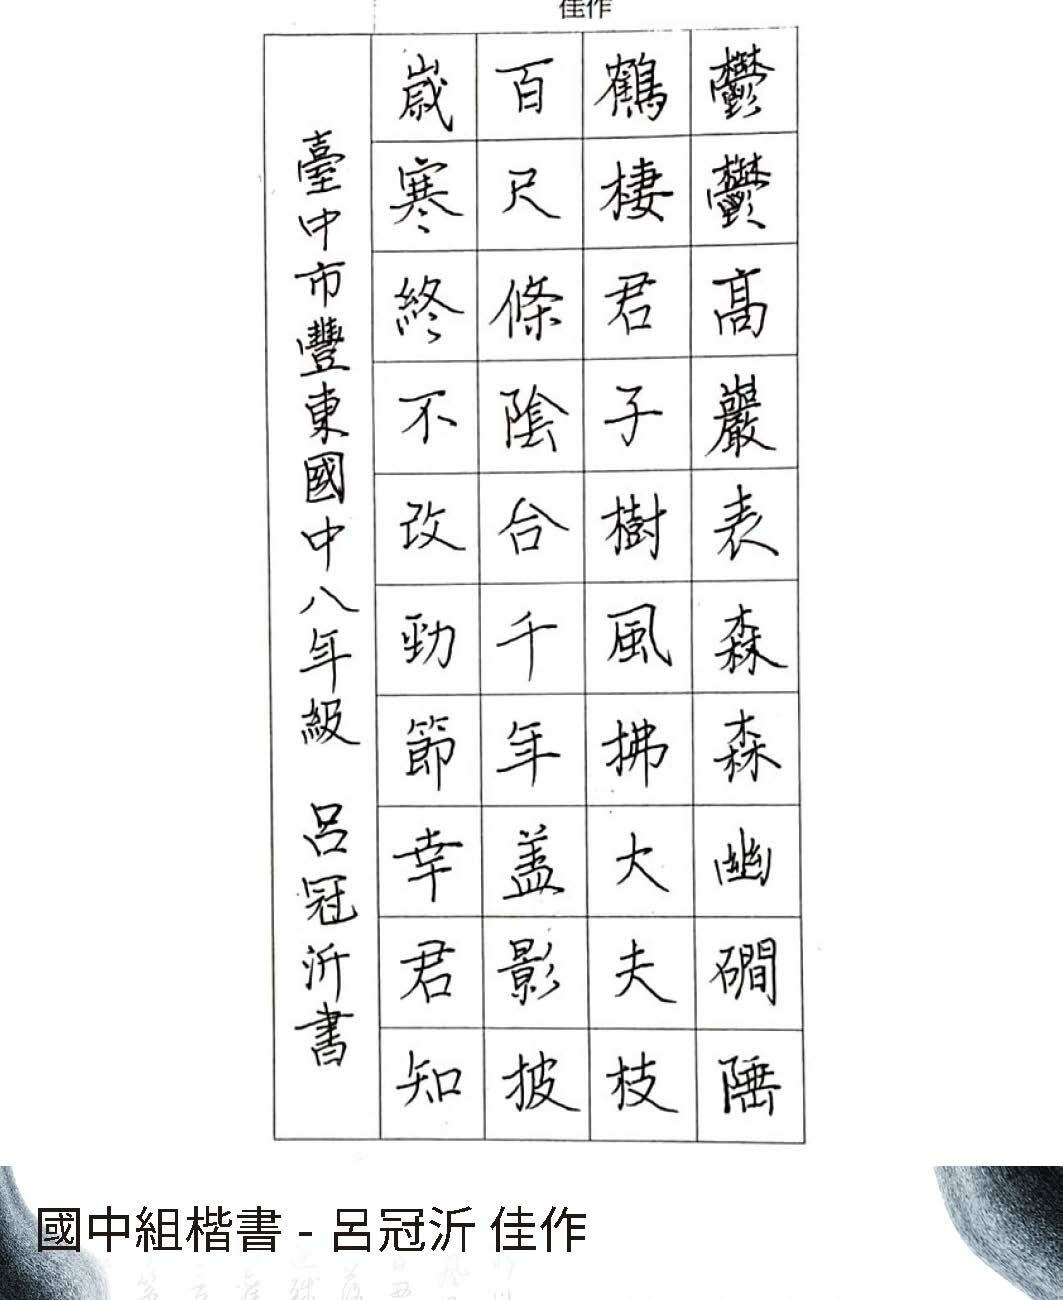 佳作
鬱鬱高巖表森森幽磵陲
鶴棲君子樹風拂大夫枝
百尺條陰合千年蓋影披
歲寒終不改勁節幸君知
臺中市豐東國中八年級 呂冠沂書
國中組楷書 - 呂冠沂 佳作